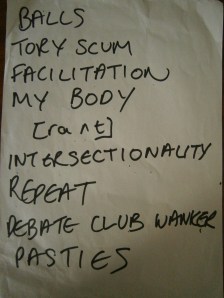 BALLS
TORY SCUM
FACILITATION
MY BODY
[rant]
INTERSECTIONALITY
REPEAT
DEBATE CLUB WANKER
PASTIES